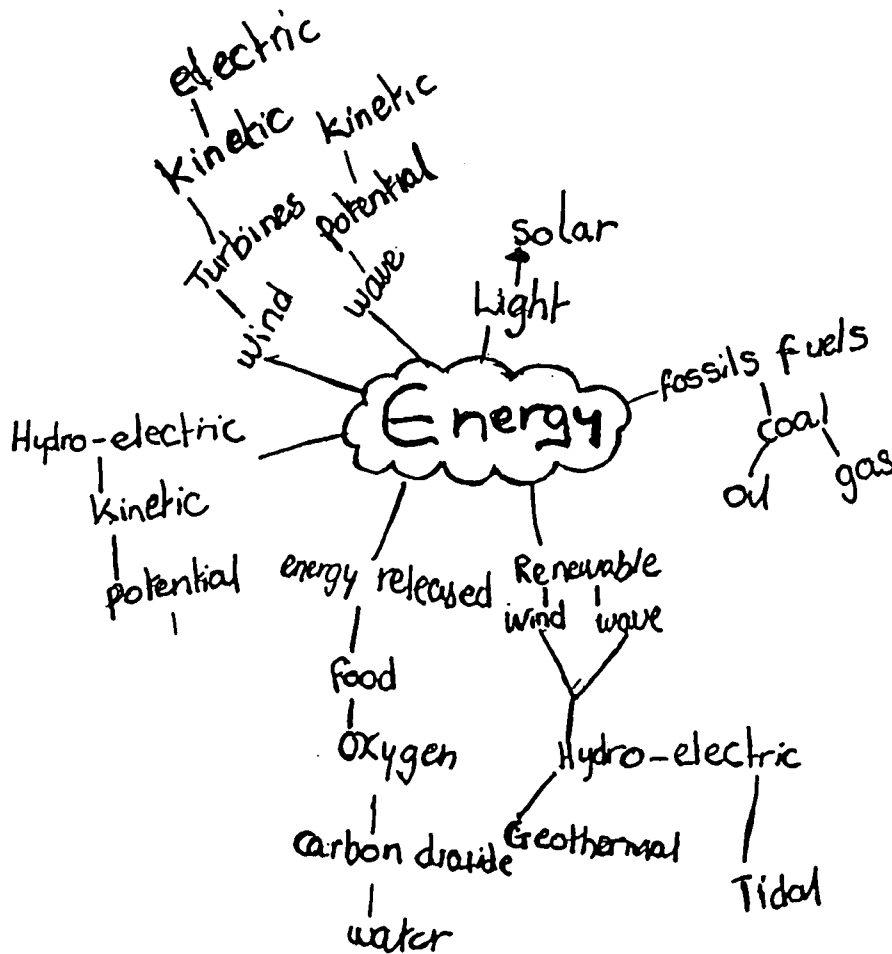 electric
kinetic
Turbines
wind
kinetic
potential
wave
solar
Light
Energy
fossils fuels
coal
oil
gas
Hydro-electric
kinetic
potential
energy released
food
oxygen
carbon dioxide
water
Renewable
wind wave
Hydro-electric
Geothermal
Tidal